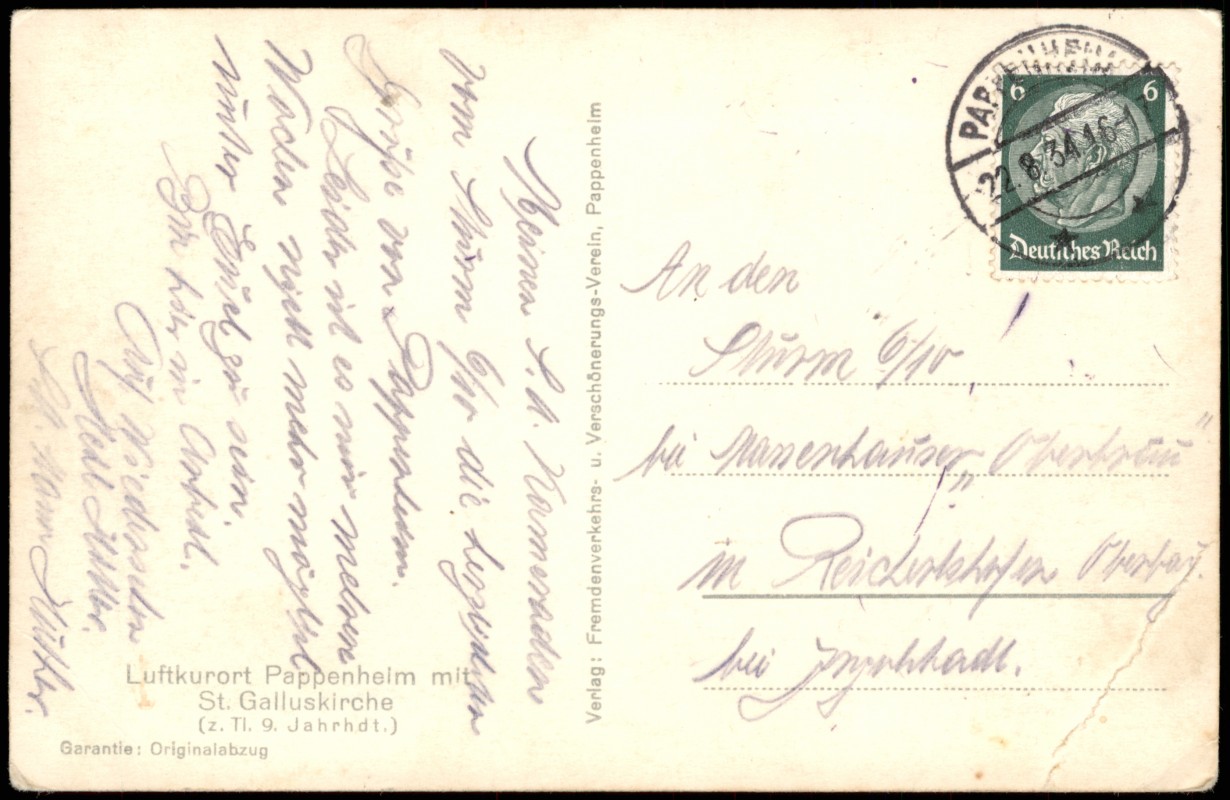 Meinen S.A. Kameraden
vom Sturm 6/10 die herzlichsten
Grüße von Pappenheim.
Leider ist es mir meben
Wochen nicht mehr möglich
unter Euch zu sein.
Bin hier in Arbeit.
Auf Wiedersehn
Heil Hitler.
Luftkurort Pappenheim mit
St. Galluskirche
(z. Tl. 9. Jahrhdt.)
Garantie: Originalabzug
Verlag: Fremdenverkehrs- u. Verschönerungs-Verein, Pappenheim
PAPPENHEIM
22.8.34.16-1
6 6
Deutsches Reich
An den
Sturm 6/10
bei „Oberbräu"
in Reichertshofen Oberbay.
bei Ingolstadt.